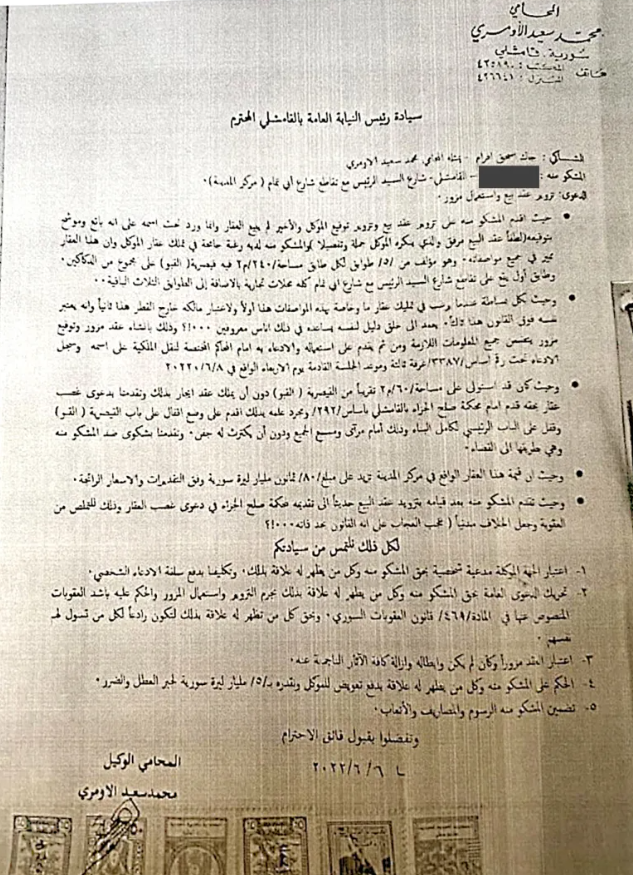 المحامي
محمد سعيد الأومري
سورية - قامشلي
هاتف المكتب : ٤٢٥١٩٠
المنزل : ٤٢٦٦٤١
سيادة رئيس النيابة العامة بالقامشلي المحترم
الشاكي : جاك سحق اهرام - يمثله المحامي محمد سعيد الاومري
المشكو منه : - القامشلي- شارع السيد الرئيس مع تقاطع شارع أبي تمام ( مركز المدينة)٠
الدعوى: تزوير عقد بيع واستعمال مزور ٠
• حيث اقدم المشكو منه على تزوير عقد بيع وتزوير توقيع الموكل والأخير لم يبع العقار وانما ورد تحت اسمه على انه بائع وموضح
بتوقيعه(لطفاً عقد البيع مرفق والذي ينكره الموكل جملة وتفصيلا )والمشكو منه لديه رغبة جامحة في تملك عقار الموكل وان هذا العقار
مميز في جميع مواصفاته٠ وهو مؤلف من /٥/ طوابق لكل طابق مساحة/٢٤٠/م٢ فيه قيصرية( القبو) على مجموع من الدكاكين٠
وطابق أول يقع على تقاطع شارع السيد الرئيس مع شارع ابي تمام كله محلات تجارية بالاضافة إلى الطوابق الثلاث الباقية٠٠
• وحيث بكل بساطة عندما يرغب في تمليك عقار ما وخاصة بهذه المواصفات هذا أولاً ولاعتبار مالكه خارج القطر هذا ثانياً وانه يعتبر
نفسه فوق القانون هذا ثالثاً٠ يعمد الى خلق دليل لنفسه يساعده في ذلك اناس معروفين ٠٠٠!؟ وذلك بانشاء عقد مزور وتوقيع
مزور يتضمن جميع المعلومات اللازمة ومن ثم يقدم على استعماله والادعاء به امام المحاكم المختصة لنقل الملكية على اسمه وسجل
الادعاء تحت رقم أساس/٣٣٨٧/غرفة ثالثة وموعد الجلسة القادمة يوم الاربعاء الواقع في ٢٠٢٢/٦/٨٠
• وحيث كان قد استولى على مساحة/٦٠/م٢ تقريباً من القيصرية ( القبو) دون أن يملك عقد ايجار بذلك وتقدمنا بدعوى غصب
عقار بحقه قدم امام محكمة صلح الجزاء بالقامشلي بأساس/٢٩٢/ وبمجرد علمه بذلك اقدم على وضع اقفال على باب القيصرية ( القبو)
وقفل على الباب الرئيسي لكامل البناء وذلك أمام مرأى ومسمع الجميع ودون أن يكترث له جفن٠ وتقدمنا بشكوى ضد المشكو منه
وهي طريقها الى القضاء٠
• وحيث ان قيمة هذا العقار الواقع في مركز المدينة تزيد على مبلغ/٨٠/ ثمانون مليار ليرة سورية وفق التقديرات والاسعار الرائجة٠
• وحيث تقدم المشكو منه بعد قيامه بتزويد عقد البيع حديثاً الى تقديمه محكمة صلح الجزاء في دعوى غصب العقار وذلك للتملص من
العقوبة وجعل الخلاف مدنياً ( عجب العجاب على انه القانون عند فاته٠٠٠!؟
لكل ذلك نلتمس من سيادتكم
١- اعتبار الجهة الموكلة مدعية شخصية بحق المشكو منه وكل من يظهر له علاقة بذلك٠ وتكليفنا بدفع سلفة الادعاء الشخصي٠
٢- تحريك الدعوى العامة بحق المشكو منه وكل من يظهر له علاقة بذلك بجرم التزوير واستعمال المزور والحكم عليه باشد العقوبات
المنصوص عنها في المادة/٤٦٩/ قانون العقوبات السوري٠ وبحق كل من تظهر له علاقة بذلك لتكون رادعاً لكل من تسول لهم
نفسهم ٠
٣- اعتبار العقد مزوراً وكأن لم يكن وابطاله وازالة كافة الآثار الناجمة عنه٠
٤- الحكم على المشكو منه وكل من يظهر له علاقة بدفع تعويض للموكل وبقدره بـ/٥/ مليار ليرة سورية لجبر العطل والضرر٠
٥- تضمين المشكو منه الرسوم والمصاريف والأتعاب٠
وتفضلوا بقبول فائق الاحترام
٢٠٢٢/٦/٦
المحامي الوكيل
محمدسعيد الاومري